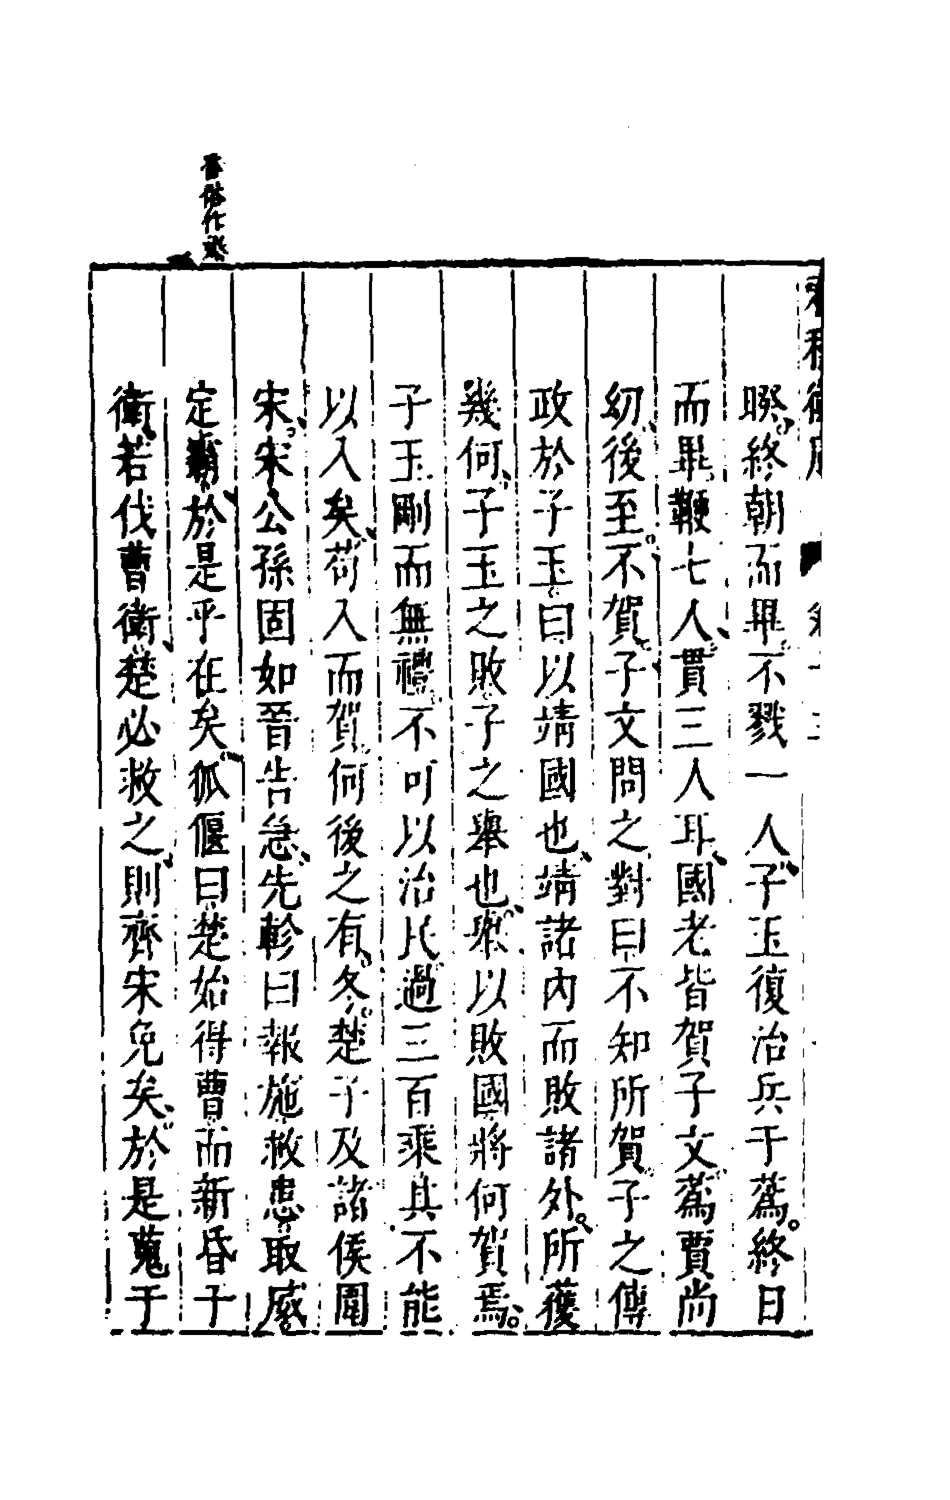 暌終朝而畢不戮一人子玉復治兵于蒍終日
而畢鞭七人貫三人耳國老皆賀子文蒍賈尚
幼後至不賀子文問之對曰不知所賀子之傳
政於子玉曰以靖國也靖諸內而敗諸外所獲
幾何子玉之敗子之舉也舉以敗國將何賀焉
子玉剛而無禮不可以治民過三百乘其不能
以入矣苟入而賀何後之有冬楚子及諸侯圍
宋宋公孫固如晉告急先軫曰報施救患取威
定霸於是乎在矣狐偃曰楚始得曹而新昏于
衛若伐曹衛楚必救之則齊宋免矣於是蒐于